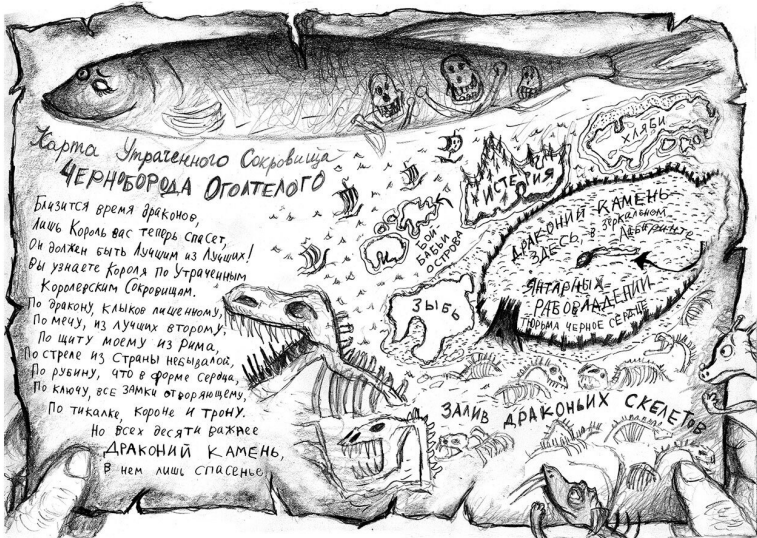 Карта Утраченного Сокровища
ЧЕРНОБОРОДА ОГОЛТЕЛОГО
Близится время драконов,
Лишь Король вас теперь спасет,
Он должен быть Лучшим из Лучших!
Вы узнаете Короля по Утраченным
Королевским Сокровищам.
По дракону, клыков лишенному,
По мечу, из лучших второму,
По щиту моему из Рима,
По стреле из Страны небывалой,
По рубину, что в форме сердца,
По ключу, все замки отворяющему,
По тикалке, короне и трону.
Но всех десяти важнее
ДРАКОНИЙ КАМЕНЬ,
В нем лишь спасенье
ХЛЯБИ
ИСТЕРИЯ
БОЙ-
БАБЬИ
ОСТРОВА
ЗЫБЬ
ДРАКОНИЙ КАМЕНЬ
ЗДЕСЬ, в зеркальном
Лабиринте
ЯНТАРНЫХ
РАБОВЛАДЕНИЙ
ТЮРЬМА ЧЕРНОЕ СЕРДЦЕ
ЗАЛИВ ДРАКОНЬИХ СКЕЛЕТОВ